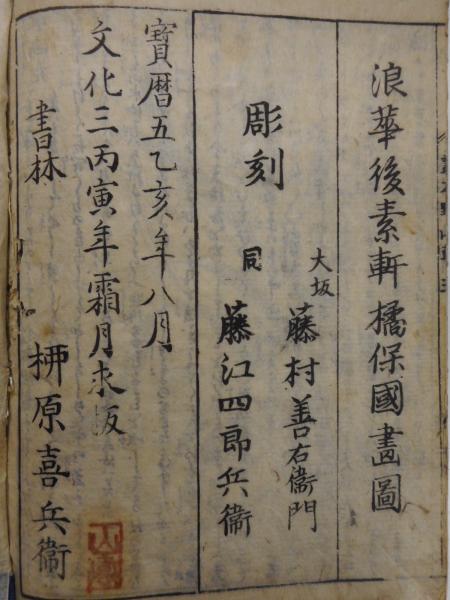 浪華後素軒橘保國畫圖
彫刻
大坂 藤村善右衞門
同 藤江四郎兵衞
寶暦五乙亥年八月
文化三丙寅年霜月求版
書林 柳原喜兵衞